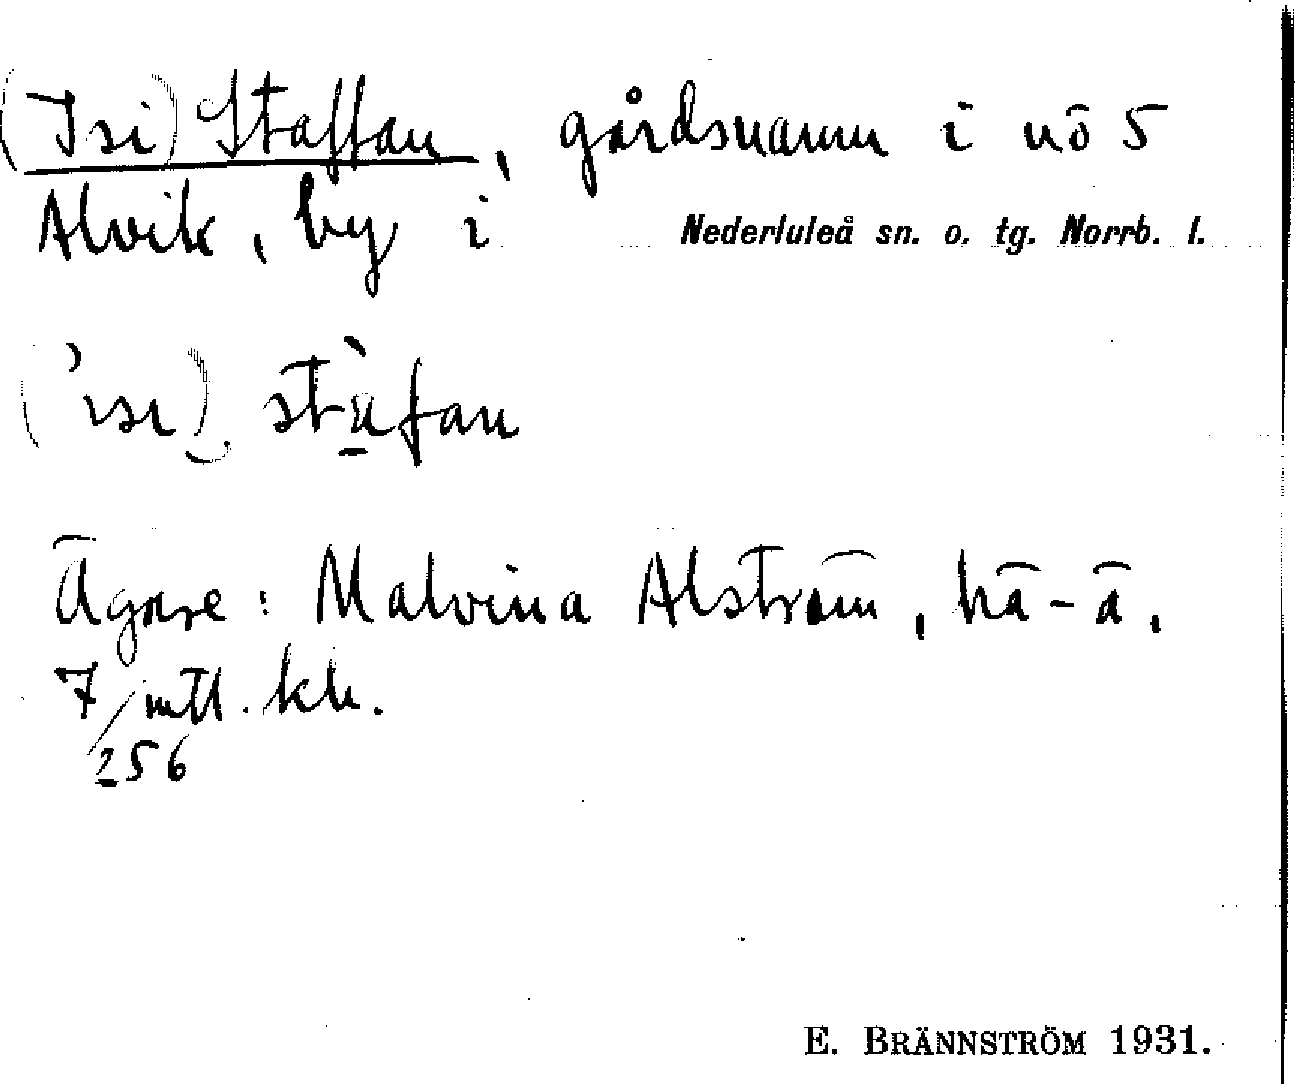 (Isi) Staffan, gårdsnamn i nö 5
Alvik, by i Nederluleå sn. o. tg. Norrb. l.
(ʼısı) stàfan
Ägare: Malvina Alström, hä-ä.
7/256 mtl. kh.
E. BRÄNNSTRÖM 1931.